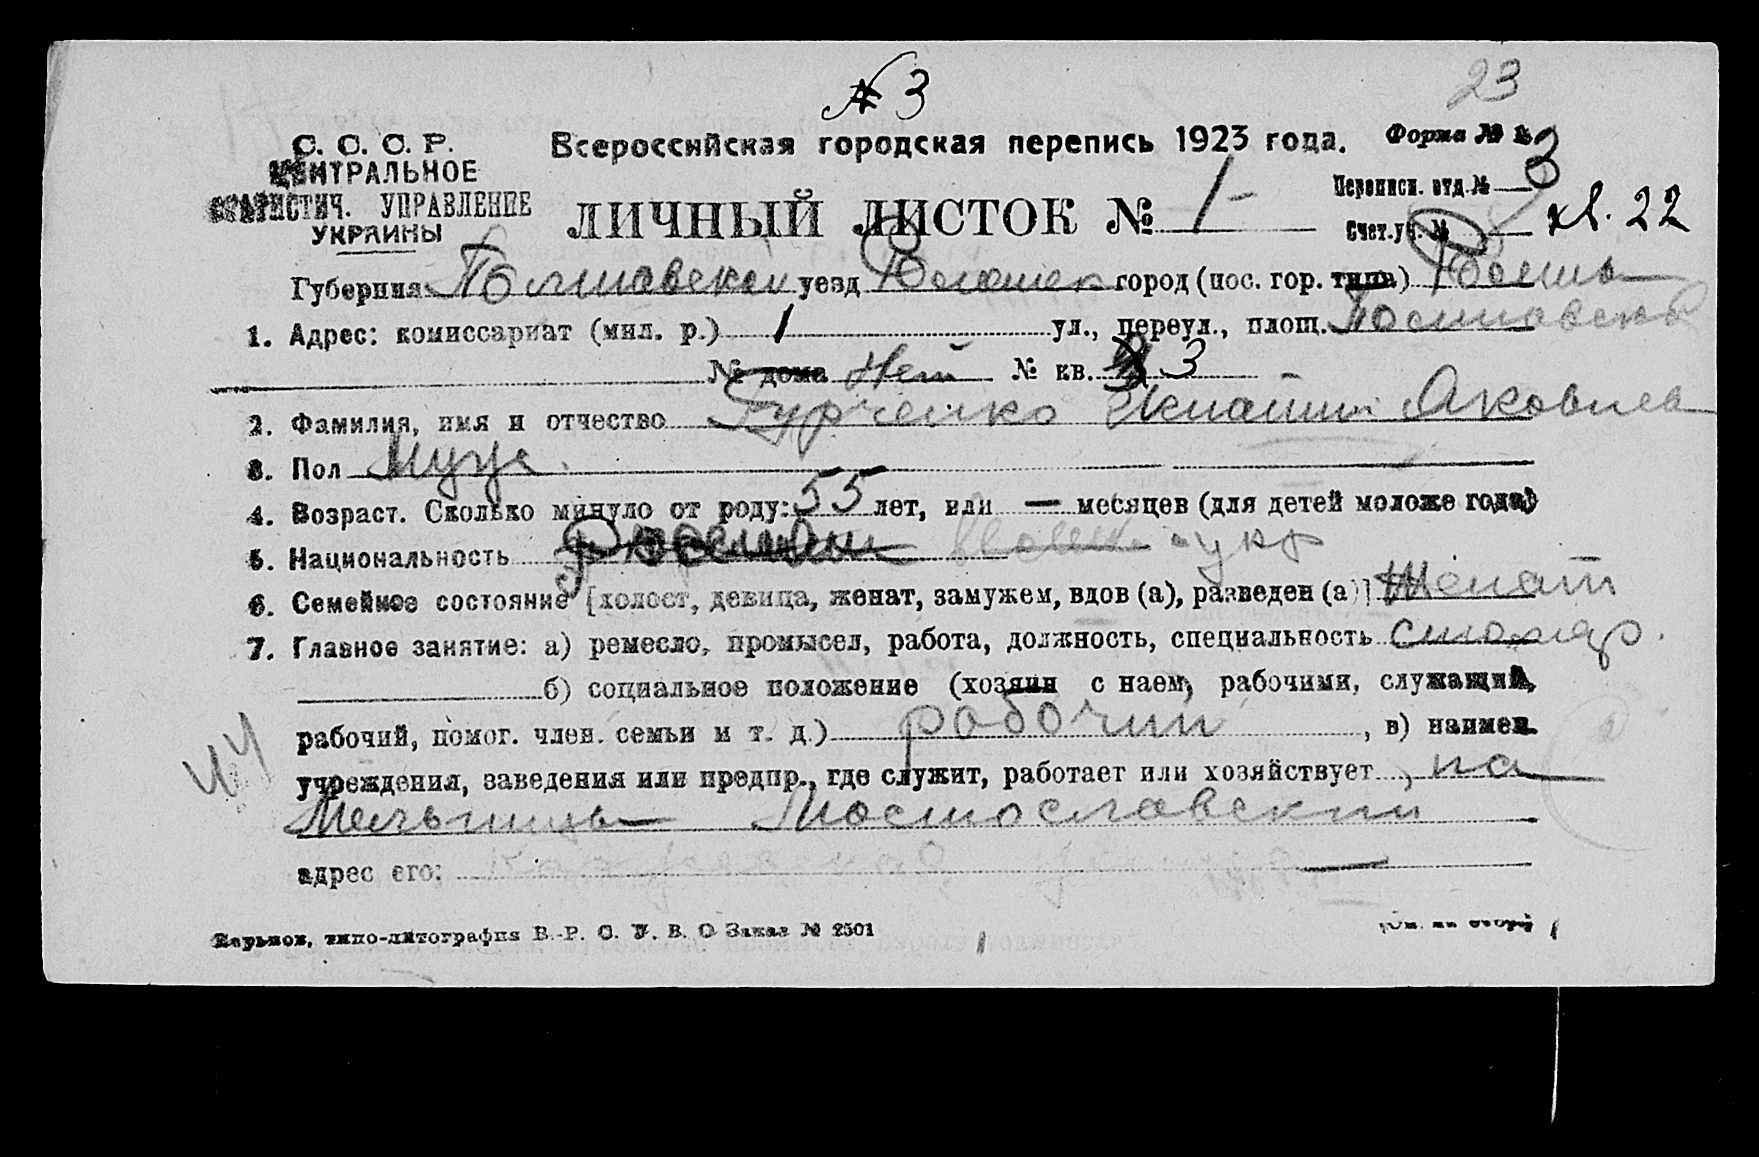 № 3
23
С. С. С. Р. Всероссийская городская перепись 1923 года. Форма №
ЦЕНТРАЛЬНОЕ
СТАТИСТИЧ. УПРАВЛЕНИЕ
УКРАИНЫ
Переписн. отд. № 3
ЛИЧНЫЙ ЛИСТОК № 1-
Счет. уч. № 22
Губерния Полтавская уезд город (пос. гор. типа)
1. Адрес: комиссариат (мил. р.) 1 ул., переул., площ.
№ дома Нет № кв. 3
2. Фамилия, имя и отчество Яковлев
3. Пол Муж.
4. Возраст. Сколько минуло от роду: 55 лет, или — месяцев (для детей моложе года)
5. Национальность укр
6. Семейное состояние [холост, девица, женат, замужем, вдов (а), разведен (а)] Женат
7. Главное занятие: а) ремесло, промысел, работа, должность, специальность столяр.
б) социальное положение (хозяин с наемн. рабочими, служащий,
рабочий, помог. член. семьи и т. д.) рабочий, в) наимен.
учреждения, заведения или предпр., где служит, работает или хозяйствует, на
Мельницы
адрес его:
Харьков, типо-литография В.-Р. С. У. В. О. Заказ № 2501